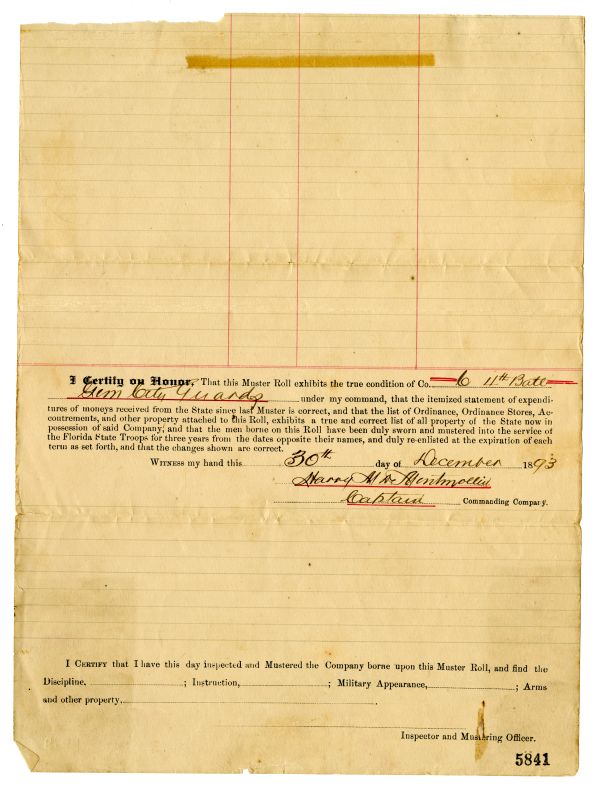 I Certify on Honor, That this Muster Roll exhibits the true condition of Co. 11th Batt
Gem City Guards under my command, that the itemized statement of expendi-
tures of moneys received from the State since last Muster is correct, and that the list of Ordinance, Ordinance Stores, Ac-
coutrements, and other property attached to this Roll, exhibits a true and correct list of all property of the State now in
possession of said Company, and that the men borne on this Roll have been duly sworn and mustered into the service of
the Florida State Troops for three years from the dates opposite their names, and duly re-enlisted at the expiration of each
term as set forth, and that the changes shown are correct.
WITNESS my hand this 30th day of December 1893
Harry
Captain Commanding Company.
I CERTIFY that I have this day inspected and Mustered the Company borne upon this Muster Roll, and find the
Discipline, ; Instruction, ; Military Appearance, ; Arms
and other property,
Inspector and Mustering Officer.
5841